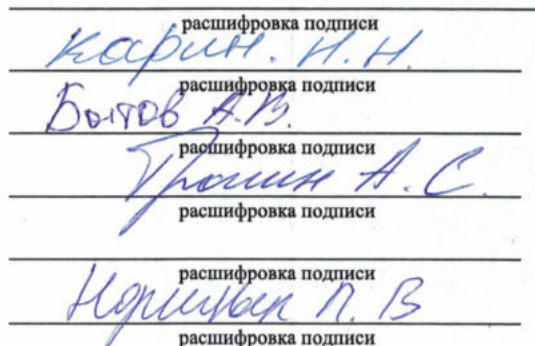 расшифровка подписи
Карин. Н.Н.
расшифровка подписи
Бытов А.В.
расшифровка подписи
Тронин А.С.
расшифровка подписи
расшифровка подписи
П.В
расшифровка подписи